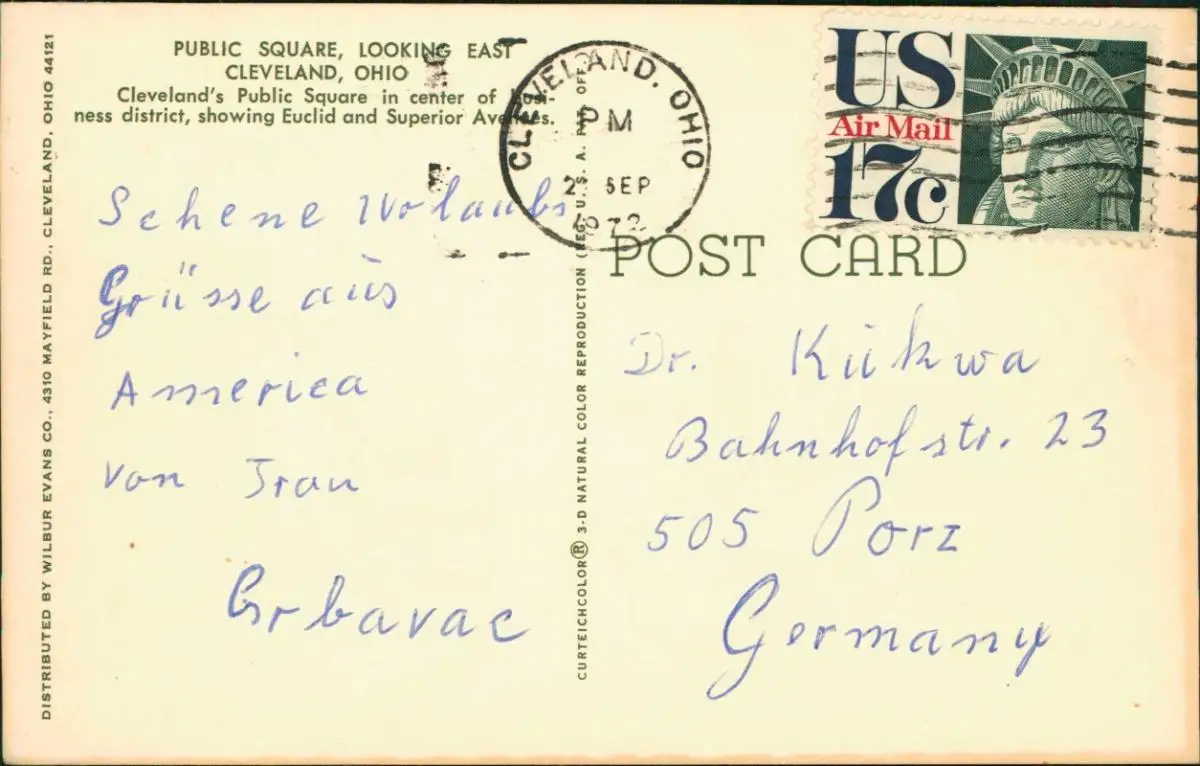 PUBLIC SQUARE, LOOKING EAST
CLEVELAND, OHIO
Cleveland's Public Square in center of busi-
ness district, showing Euclid and Superior Avenues.
Schene Urlaubs
Grüsse aus
America
von Iran
Grbavac
DISTRIBUTED BY WILBUR EVANS CO., 4310 MAYFIELD RD., CLEVELAND, OHIO 44121
CURTEICHCOLOR® 3-D NATURAL COLOR REPRODUCTION (REG. U. S. A. OFF
CLEVELAND, OHIO
PM
SEP
US
Air Mail
17c
POST CARD
Dr. Kükwa
Bahnhofstr. 23
505 Porz
Germany